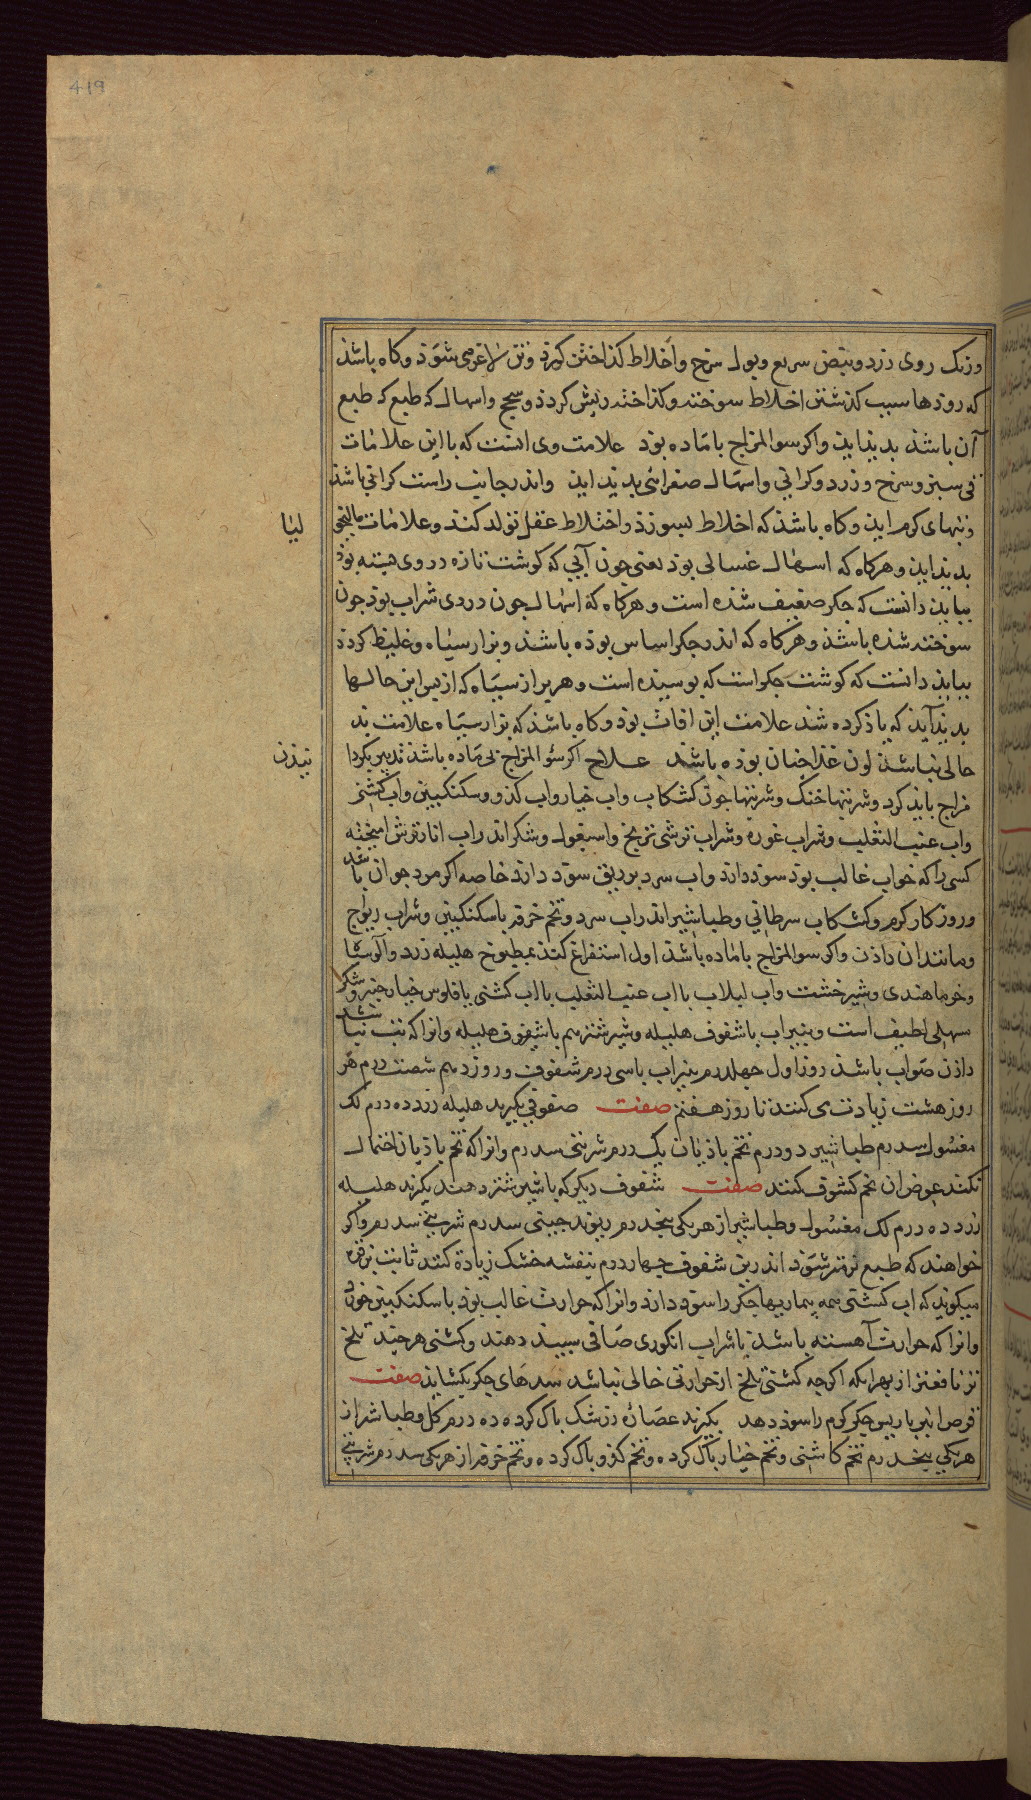 419
ورنک روی زرد و نبض سریع و بول سرخ و اخلاط کذاختن کیرد و تن لاغر می شوذ و کاه باشذ
که روذها سبب کذشتن اخلاط سوخته و کذاخته ریش کردذ و سحج و اسهال که طبع که طبع
آن باشذ بدیذ ایذ و اکر سوالمزاج با ماده بوذ علامت وی انست که با این علامات
قی سبز و سرخ و زرد و کراثی و اسهال صفرائی بدیذ ایذ و اندر جانب راست کرانی باشذ
و تبهای کرم ایذ و کاه باشذ که اخلاط بسوزذ و اختلاط عقل تولد کند و علامات مالیخو
لیا
بدیذ ایذ و هرکاه که اسهال غسالی بوذ یعنی جون آبی که کوشت تازه در وی شسته بوذ
ببایذ دانست که جکر ضعیف شذه است و هرکاه که اسهال جون دردی شراب بوذ جون
سوخته شذه باشذ و هرکاه که اندر جکر اماس بوذه باشذ و براز سیاه و غلیظ کردذ
ببایذ دانست که کوشت جکر است که بوسیذه است و هر براز سیاه که از پس این حالها
بدیذ آیذ که یاذ کرده شذ علامت این افات بوذ و کاه باشذ که براز سیاه علامت بد
حالی نباشذ لون غذا جنان بوذه باشذ علاج اکر سوالمزاج بی ماده باشذ تدبیر بکردا
نیذن
مزاج بایذ کرد و شربتها خنک و شربتها جون کشکاب واب خیار واب کذو و سکنکبین واب کشنی
واب عنب الثعلب و شراب غوره و شراب ترشی ترنج و اسبغول و شکر اندر اب انار ترش امیخته
کسی را که خواب غالب بوذ سوذ دارذ و اب سرد بر ریق سوذ دارذ خاصه اکر مرد جوان باشد
و روزکار کرم و کشکاب سرطانی و طباشیر اندر اب سرد و تخم خرفه با سکنکبین و شراب ریواج
و مانند ان داذن و اکر سوالمزاج با ماده باشذ اول استفراغ کند بمطبوخ هلیله زرد و الو سیا
و خرما هندی و شیرخشت واب لبلاب با اب عنب الثعلب با اب کشنی با فلوس خیارجنبر و شکر
سهلی لطیف است و بنیراب با سفوف هلیله و شیر شتر هم با سفوف هلیله و انرا که تب نباشد
داذن صواب باشذ روز اول جهل درم بنیراب با سی درم سفوف و روز دیم شصت درم هر
روز هشت زیادت می کنند تا روز هفتم صفت سفوفی بکیرند هلیله زرد ده درم لک
مغسول سدرم طباشیر دو درم تخم باذیان یک درم شربتی سدرم و انرا که تخم باذیان احتمال
نکند عوض ان تخم کشوف کنند صفت سفوف دیکر که با شیر شتر دهند بکیرند هلیله
زرد ده درم لک مغسول و طباشیر از هریکی بنجدرم ریوند جینی سدرم شربتی سدرم و اکر
خواهند که طبع نرمتر شوذ اندرین سفوف جهار درم بنفشه خشک زیاده کنند ثابت بن قره
میکویذ که اب کشنی همه بیماریها جکر را سوذ دارذ و انرا که حرارت غالب بوذ با سکنکبین خورذ
و انرا که حرارت آهسته باشذ با شراب انکوری صافی سبید دهند و کشنی هرجند تلخ
تر نافعتر از بهر انکه اکرجه کشنی تلخ از حرارتی خالی نباشد سدهای جکر بکشایذ صفت
قرص انبرباریس جکر کرم را سوذ دهد بکیرند عصاره زرشک باک کرده ده درم کل و طباشیر از
هریکی بنجدرم تخم کاشنی و تخم خیار باک کرده و تخم کذو باک کرده و تخم خرفه از هریکی سدرم شربتی